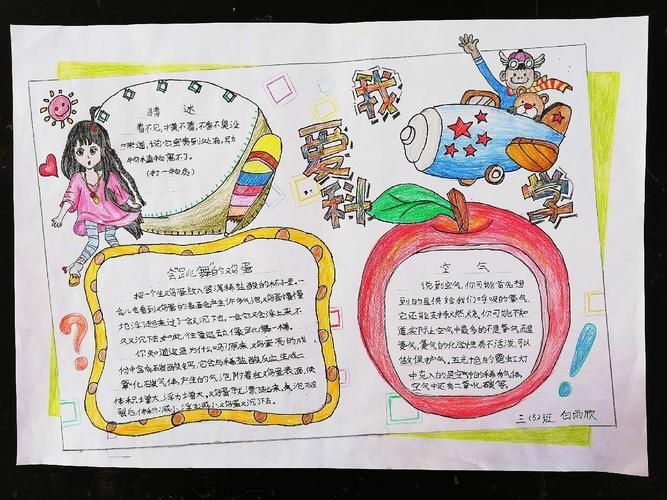 猜迷
看不见,摸不着,不香不臭没
味道,说它宝贵到处有,动
物植物离不了。
(打一物质)
我爱科学
会“跳舞”的鸡蛋
把一个生鸡蛋放入盛满稀盐酸的杯子里。一
会儿会看到鸡蛋的表面会产生许多气泡鸡蛋慢慢
地浮起来过了一会又沉下去,一会它又会浮上来不
久又沉下去如此往复运动,像在跳舞一样。
你知道这是为什么吗?原来鸡蛋壳的成
份中含有碳酸钙,它会与稀盐酸反应生成二
氧化碳气体,产生的气泡附着在鸡蛋表面,使
体积增大,浮力增大,鸡蛋就漂起来,气泡破
裂后体积减小浮力减小鸡蛋又沉下去。
空气
说到空气,你可能首先想
到的是供给我们呼吸的氧气,
它还能支持燃烧,你可能不知
道实际上空气中最多的不是氧气而是
氮气,氮气的化学性质不活泼,可以
做保护气。五光十色的霓虹灯
中充入的是空气中的稀有气体,
空气中还有二氧化碳等。
三(5)班 白雨欣